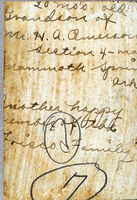 20 mo's. old
Grandson of
Mr. H. A. Emerson
Section 4 - ma
Mammoth Spri
Ark
nother happy
member of the
"Frisco Family"
7